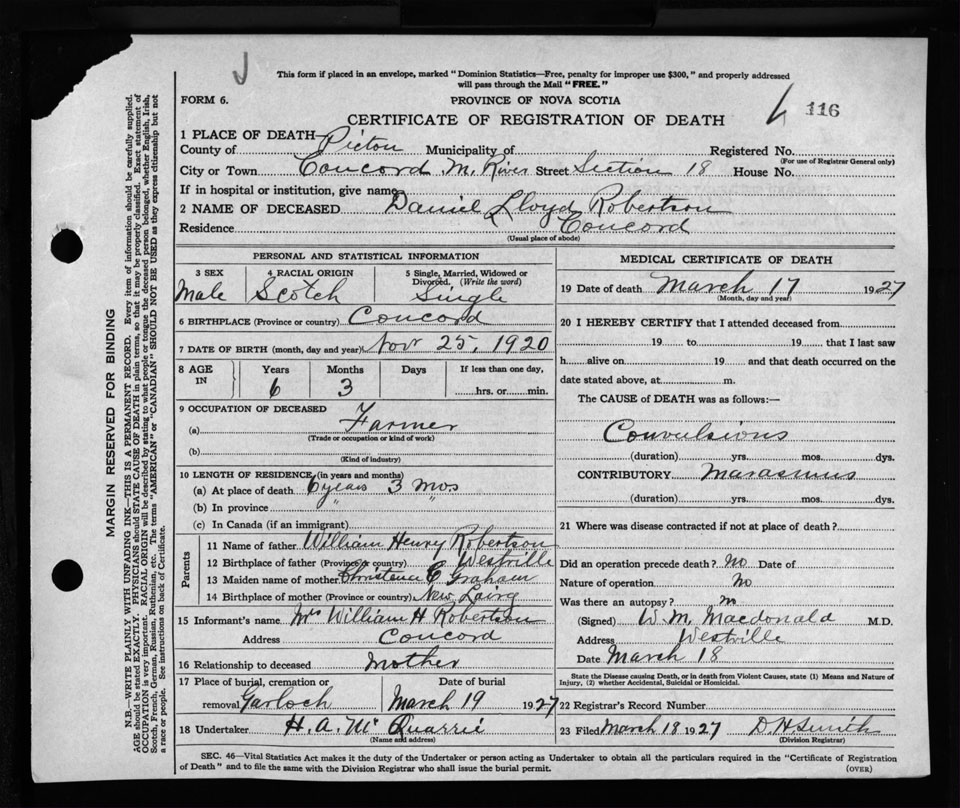 This form if placed in an envelope, marked "Dominion Statistics—Free, penalty for improper use $300," and properly addressed
will pass through the Mail "FREE."
FORM 6.
PROVINCE OF NOVA SCOTIA
116
CERTIFICATE OF REGISTRATION OF DEATH
1 PLACE OF DEATH—
County of Picton Municipality of Registered No.
(For use of Registrar General only)
City or Town Concord M. River Street Section 18 House No.
If in hospital or institution, give name
2 NAME OF DECEASED Daniel Lloyd Robertson
Residence Concord
(Usual place of abode)
PERSONAL AND STATISTICAL INFORMATION
3 SEX 4 RACIAL ORIGIN 5 Single, Married, Widowed or
Divorced. (Write the word)
Male Scotch Single
6 BIRTHPLACE (Province or country) Concord
7 DATE OF BIRTH (month, day and year) Nov 25, 1920
8 AGE IN Years Months Days If less than one day,
6 3 hrs. or min.
9 OCCUPATION OF DECEASED
(a) Farmer
(Trade or occupation or kind of work)
(b)
(Kind of industry)
10 LENGTH OF RESIDENCE (in years and months)
(a) At place of death 6 years 3 mos
(b) In province " "
(c) In Canada (if an immigrant)
Parents
11 Name of father William Henry Robertson
12 Birthplace of father (Province or country) Westville
13 Maiden name of mother Christena C Graham
14 Birthplace of mother (Province or country) New Lairg
15 Informant's name Mrs William H Robertson
Address Concord
16 Relationship to deceased Mother
17 Place of burial, cremation or Date of burial
removal Garloch March 19 1927
18 Undertaker H. A. McQuarrie
(Name and address)
MEDICAL CERTIFICATE OF DEATH
19 Date of death March 17 1927
(Month, day and year)
20 I HEREBY CERTIFY that I attended deceased from
19 to 19 that I last saw
h alive on 19 and that death occurred on the
date stated above, at m.
The CAUSE of DEATH was as follows:—
Convulsions
(duration) yrs. mos. dys.
CONTRIBUTORY Marasmus
(duration) yrs. mos. dys.
21 Where was disease contracted if not at place of death?
Did an operation precede death? No Date of
Nature of operation No
Was there an autopsy? No
(Signed) W. M. Macdonald M.D.
Address Westville
Date March 18
State the Disease causing Death, or in death from Violent Causes, state (1) Means and Nature of
Injury, (2) whether Accidental, Suicidal or Homicidal.
22 Registrar's Record Number
23 Filed March 18 1927 D H Smith
(Division Registrar)
SEC. 46—Vital Statistics Act makes it the duty of the Undertaker or person acting as Undertaker to obtain all the particulars required in the "Certificate of Registration
of Death" and to file the same with the Division Registrar who shall issue the burial permit.
(OVER)
MARGIN RESERVED FOR BINDING
N.B.—WRITE PLAINLY WITH UNFADING INK—THIS IS A PERMANENT RECORD. Every item of information should be carefully supplied.
AGE should be stated EXACTLY. PHYSICIANS should STATE CAUSE OF DEATH in plain terms, so that it may be properly classified. Exact statement of
OCCUPATION is very important. RACIAL ORIGIN will be described by stating to what people or tongue the deceased person belonged, whether English, Irish,
Scotch, French, German, Russian, Ruthenian, etc. The terms "AMERICAN" or "CANADIAN" SHOULD NOT BE USED as they express citizenship but not
a race or people. See instructions on back of Certificate.